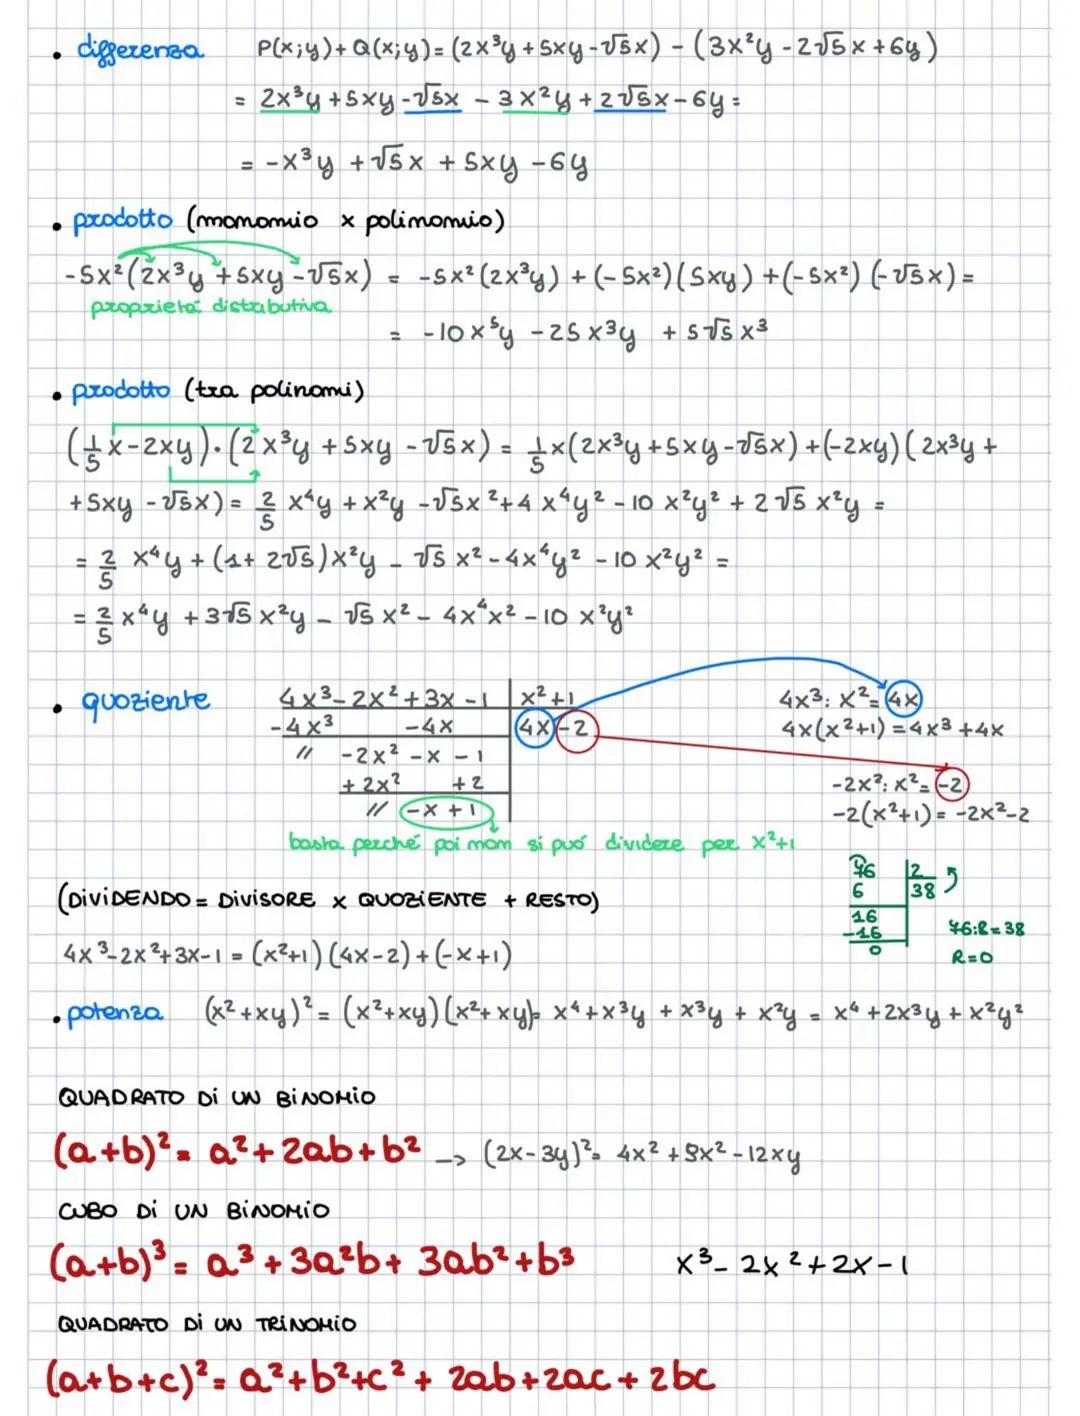 • differenza P(x;y)+Q(x;y)=(2x³y+5xy-√5x) - (3x²y-2√5x+6y)
= 2x³y+5xy-√5x - 3x²y+2√5x-6y=
= -x³y +√5x + 5xy -6y
• prodotto (monomio x polinomio)
-5x²(2x³y+5xy-√5x) = -5x²(2x³y)+(-5x²)(5xy)+(-5x²)(-√5x)=
proprietá distributiva
= -10x⁵y -25x³y +5√5x³
• prodotto (tra polinomi)
(1/5x-2xy)·(2x³y+5xy-√5x) = 1/5x(2x³y+5xy-√5x)+(-2xy)(2x³y+
+5xy-√5x)= 2/5 x⁴y+x²y-√5x²+4x⁴y²-10x²y²+2√5x²y =
= 2/5 x⁴y+(1+2√5)x²y-√5x²-4x⁴y²-10x²y² =
= 2/5 x⁴y+3√5x²y-√5x²-4x⁴x²-10x²y²
• quoziente 4x³-2x²+3x-1 | x²+1 4x³:x²=4x
-4x³ -4x | 4x-2 4x(x²+1)=4x³+4x
// -2x²-x-1
+2x² +2 -2x²:x²=-2
// -x+1 -2(x²+1)=-2x²-2
basta perché poi non si puó dividere per x²+1
(DiViDENDO = DiViSORE x QUOZiENTE + RESTO)
4x³-2x²+3x-1=(x²+1)(4x-2)+(-x+1)
76 | 2
6 | 38
16
-16 76:2=38
0 R=0
• potenza (x²+xy)²=(x²+xy)(x²+xy)= x⁴+x³y+x³y+x²y = x⁴+2x³y+x²y²
QUADRATO Di UN BiNOMiO
(a+b)²= a²+2ab+b² -> (2x-3y)²= 4x²+9x²-12xy
CUBO Di UN BiNOMiO
(a+b)³= a³+3a²b+3ab²+b³ x³-2x²+2x-1
QUADRATO Di UN TRiNOMiO
(a+b+c)²= a²+b²+c²+2ab+2ac+2bc